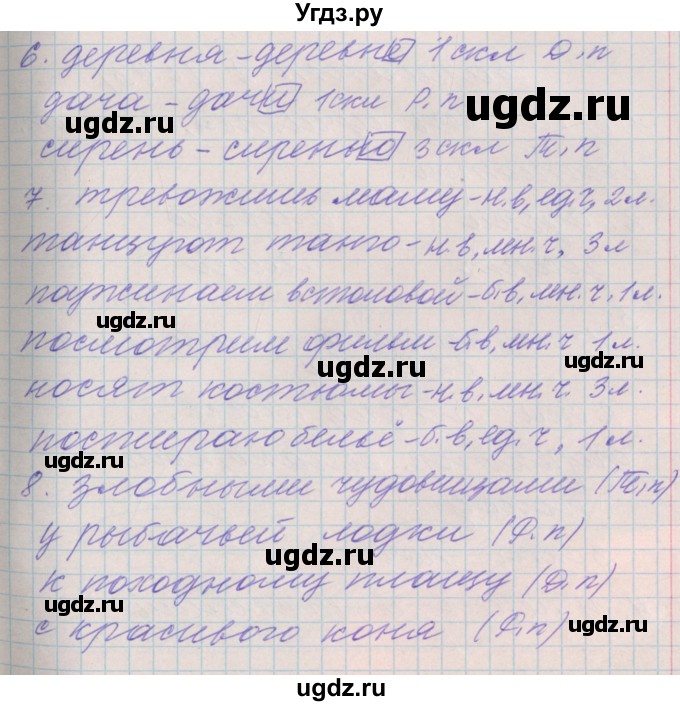 Угдз.ру
6. деревня - деревне 1 скл Д.п
дача - дачи 1 скл Р.п
ugdz.ru
ugdz.ru
сирень - сиренью 3 скл Т.п
ugdz.ru
7. тревожишь маму - н.в, ед.ч, 2 л.
танцуют танго - н.в, мн.ч, 3 л
поужинаем в столовой - б.в, мн.ч, 1 л.
ugdz.ru
посмотрим фильм - б.в, мн.ч 1 л.
ugdz.ru
ugdz.ru
носят костюмы - н.в, мн.ч. 3 л.
постираю бельё - б.в, ед.ч, 1 л.
ugdz.ru
ugdz.ru
8. злобными чудовищами (Т.п)
у рыбачьей лодки (Р.п)
ugdz.ru
к походному плащу (Д.п)
ugdz.ru
с красивого коня (Р.п)
ugdz.ru
ugdz.ru